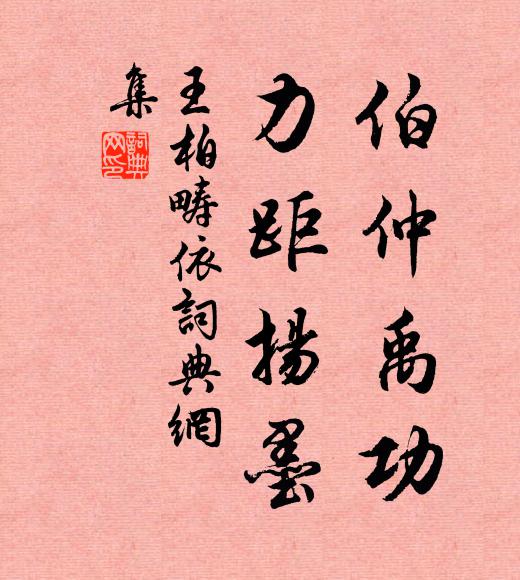 伯仲禹功
力距揚墨
王柏疇依詞典網
集
詞典網印